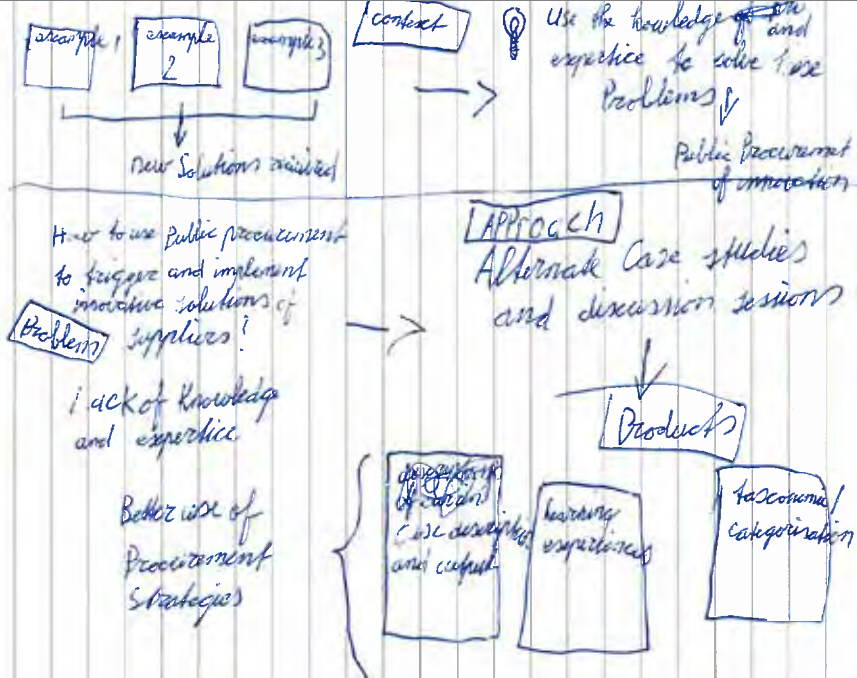 example 1
example
2
example 3
new Solutions required
context
Use the knowledge and
expertice to solve these
Problems
Public Procurement
of innovation
Problem
How to use Public procurement
to trigger and implement
inovative solutions of
suppliers?
Lack of Knowledge
and expertice
Better use of
Procurement
Strategies
APProach
Alternate Case studies
and discussion sessions
Products
case description
and output
learning
taxconomie /
categorisation